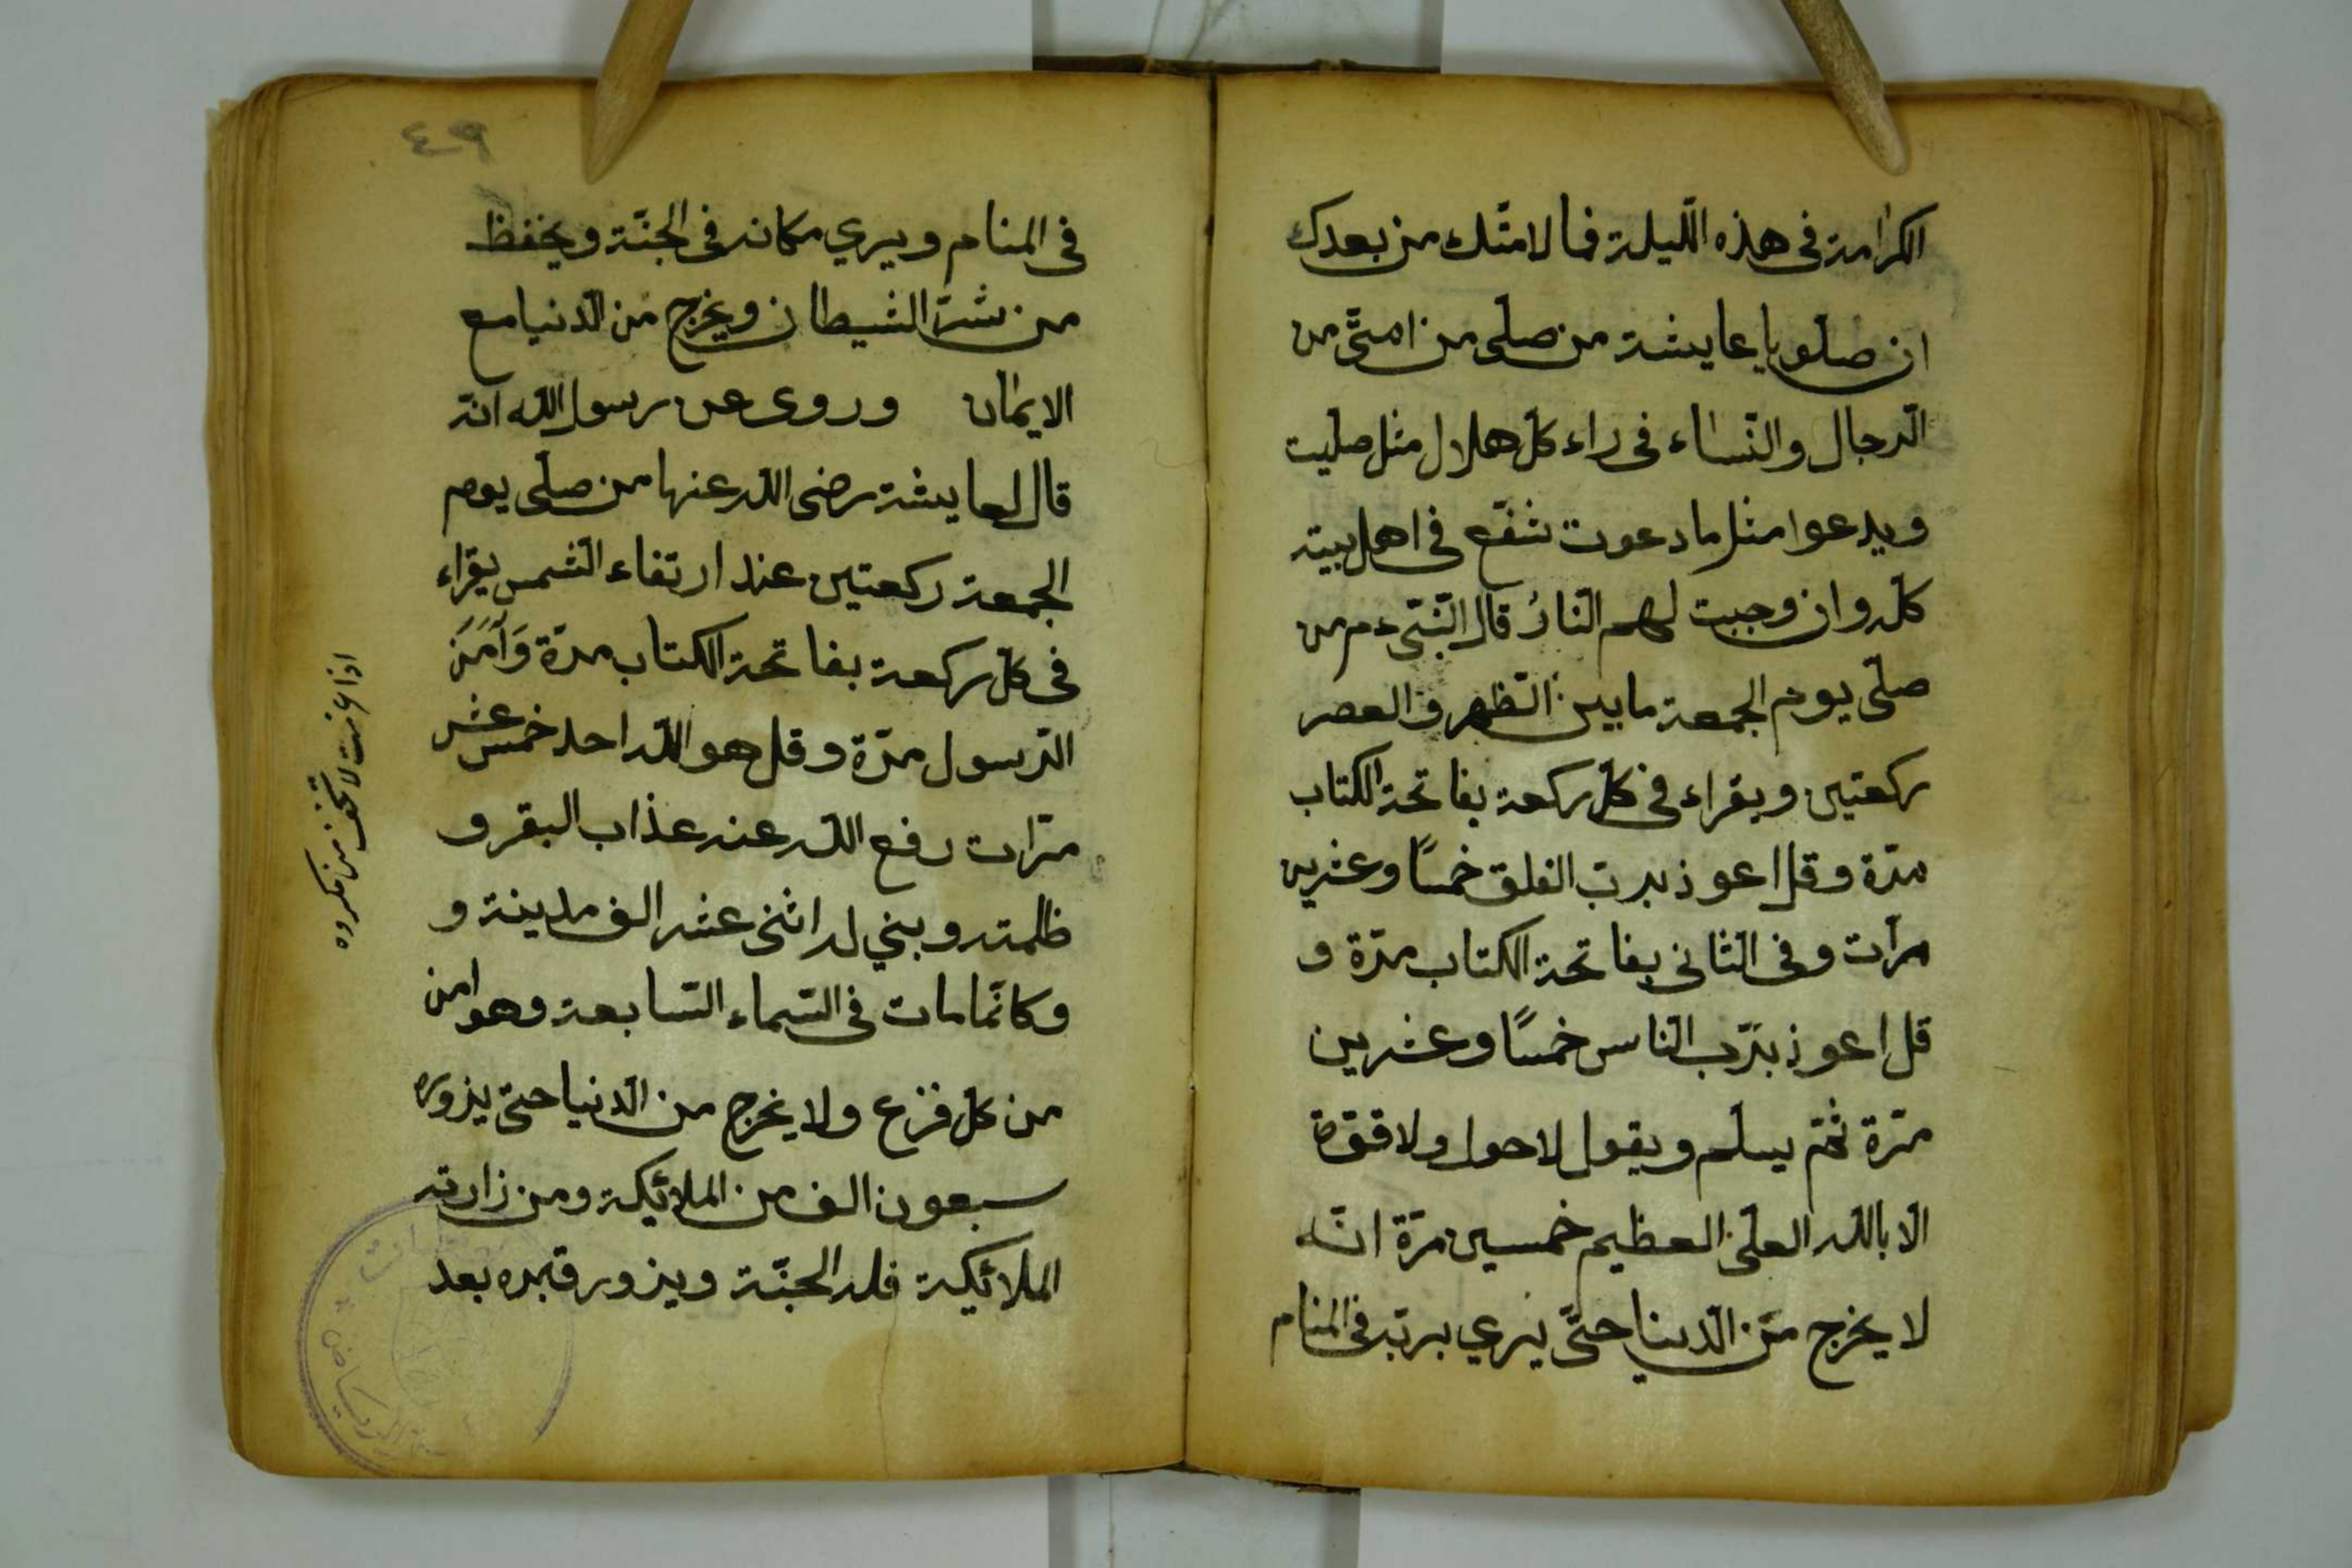 الكرامة فى هذه اللّيلة فما لامّتك من بعدك
ان صلّو يا عايشة من صلّى من امتّى من
الرّجال والنّساء فى راء كلّ هلال مثل صلّيت
ويدعوا مثل ما دعوت شفّع فى اهل بيته
كلّه وان وجبت لهم النّارُ قال النّبّى دم من
صلّى يوم الجمعة ما بين الظّهر والعصر
ركعتين ويقراء فى كلّ ركعة بفاتحة الكتاب
مرّة وقل اعوذ بربّ الفلق خمسًا وعشرين
مرّات وفى الثّانى بفاتحة الكتاب مرّة و
قل اعوذ بربّ النّاس خمسًا وعشرين
مرّة ثمّ يسلّم ويقول لاحول ولا قوّة
الّا بالله العلىّ العظيم خمسين مرّة انّه
لا يخرج من الّدينا حتّى يري بربّه فى المنام
٤٩
فى المنام ويري مكانه فى الجنّة ويحفظ
من شرّ الشيطان ويخرج من الدّنيا مع
الايمان وروى عن رسول الله انّه
قال لعايشة رضى الله عنها من صلّى يوم
الجمعة ركعتين عند ارتفاء الشّمس يقراء
فى كلّ ركعة بفاتحة الكتاب مرّة وَآمَنَ
الرّسول مرّة وقل هو الله احد خمس عشر
مرّات رفع الله عنه عذاب البقر و
ظلمته وبني له اثنى عشر الف مدينة و
وكانّما مات فى السّماء السّابعة وهو امن
من كلّ فزع ولا يخرج من الدّنيا حتّى يزوره
سبعون الف من الملائيكة ومن زارته
الملائيكة فله الجنّة ويزور قبره بعد
اذا لا تخف من مكروه